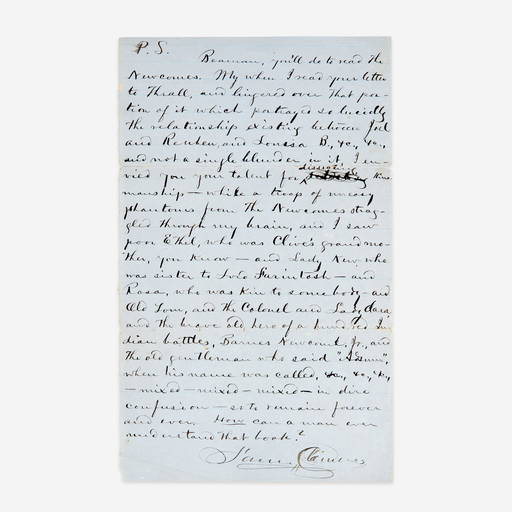 P.S.
Beaman, you'll do to read the
Newcomes. My when I read your letter
to Thrall, and lingered over that por-
tion of it which portrayed so lucidly
the relationship existing between Joel
and Reuben, and Lonssa B., &c., &c.,
and not a single blunder in it, I en-
vied you your talent for dissecting kins
manship — while a troop of uneasy
phantoms from the Newcomes strag-
gled through my brain, and I saw
poor Ethel, who was Clive's grandmo-
ther, you know — and Lady Kew who
was sister to Lord Farintosh — and
Rosa, who was kin to somebody — and
Old Tom, and the Colonel and Lady Clara,
and the brave old hero of a hundred In-
dian battles, Barnes Newcome, Jr., and
the old gentleman who said "Adsum",
when his name was called, &c., &c., &c.,
— mixed — mixed — mixed — in dire
confusion — so to remain forever
and ever. How can a man ever
understand that book?
Sam. Clemens